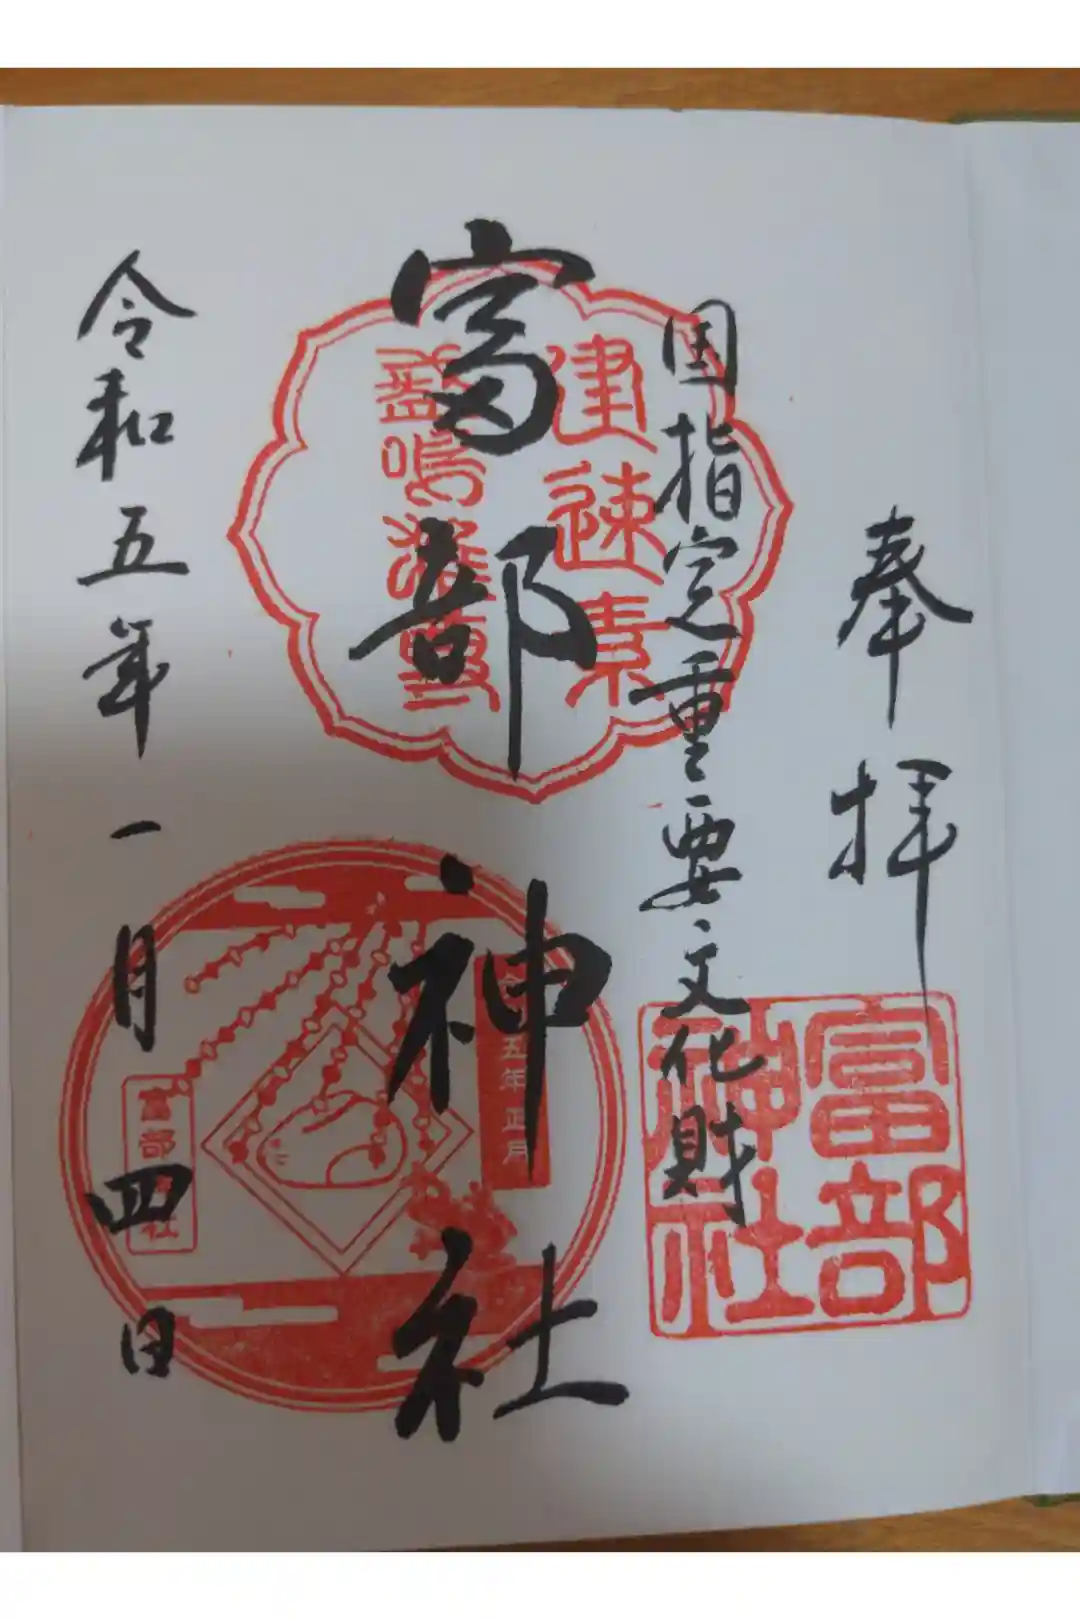 奉拝
国指定重要文化財
富部神社
令和五年一月四日
建速素
盞嗚尊
富部
神社
五年正月
富部
社